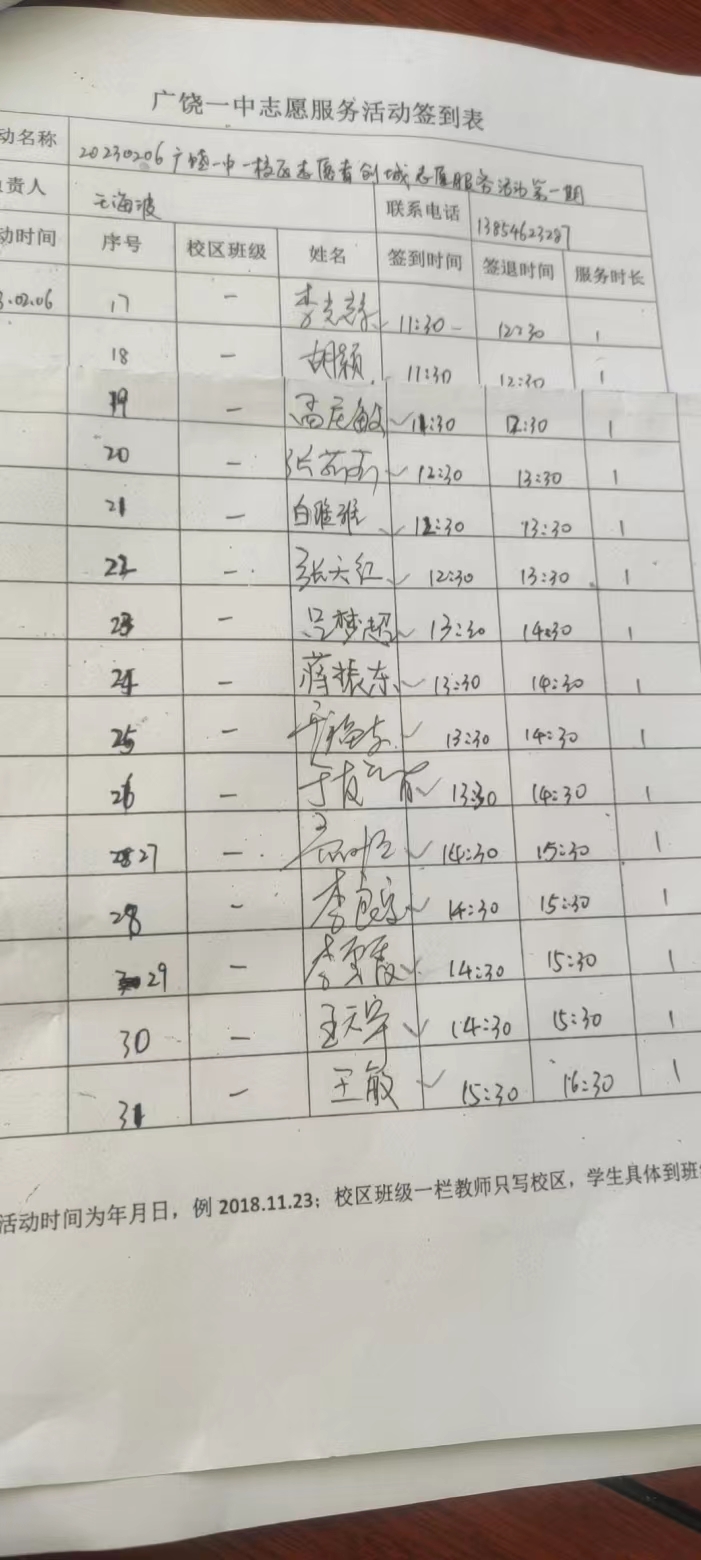 广饶一中志愿服务活动签到表
动名称 20230206广饶一中一校区志愿者创城志愿服务活动第一期
责人 王海波 联系电话 13854623287
动时间 序号 校区班级 姓名 签到时间 签退时间 服务时长
.02.06 17 一 11:30 12:30 1
18 一 胡颖 11:30 12:30 1
19 一 11:30 12:30 1
20 一 12:30 13:30 1
21 一 12:30 13:30 1
22 一 张六红 12:30 13:30 1
23 一 吕梦超 13:30 14:30 1
24 一 蒋振东 13:30 14:30 1
25 一 13:30 14:30 1
26 一 13:30 14:30 1
27 一 14:30 15:30 1
28 一 14:30 15:30 1
29 一 14:30 15:30 1
30 一 王天宇 14:30 15:30 1
31 一 王敏 15:30 16:30 1
活动时间为年月日，例 2018.11.23；校区班级一栏教师只写校区，学生具体到班